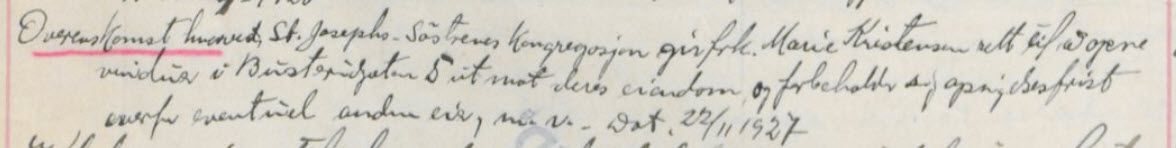 Overenskomst hvorved, St. Josephs-Söstrenes Kongregasjon gir frk. Marie Kristensen rett til å opne
vinduer i Busterudgaten 5 ut mot deres eiendom, og forbeholder sig opsigelsesfrist
overfor eventuel anden eier, m. v. - Dat. 22/11 1927